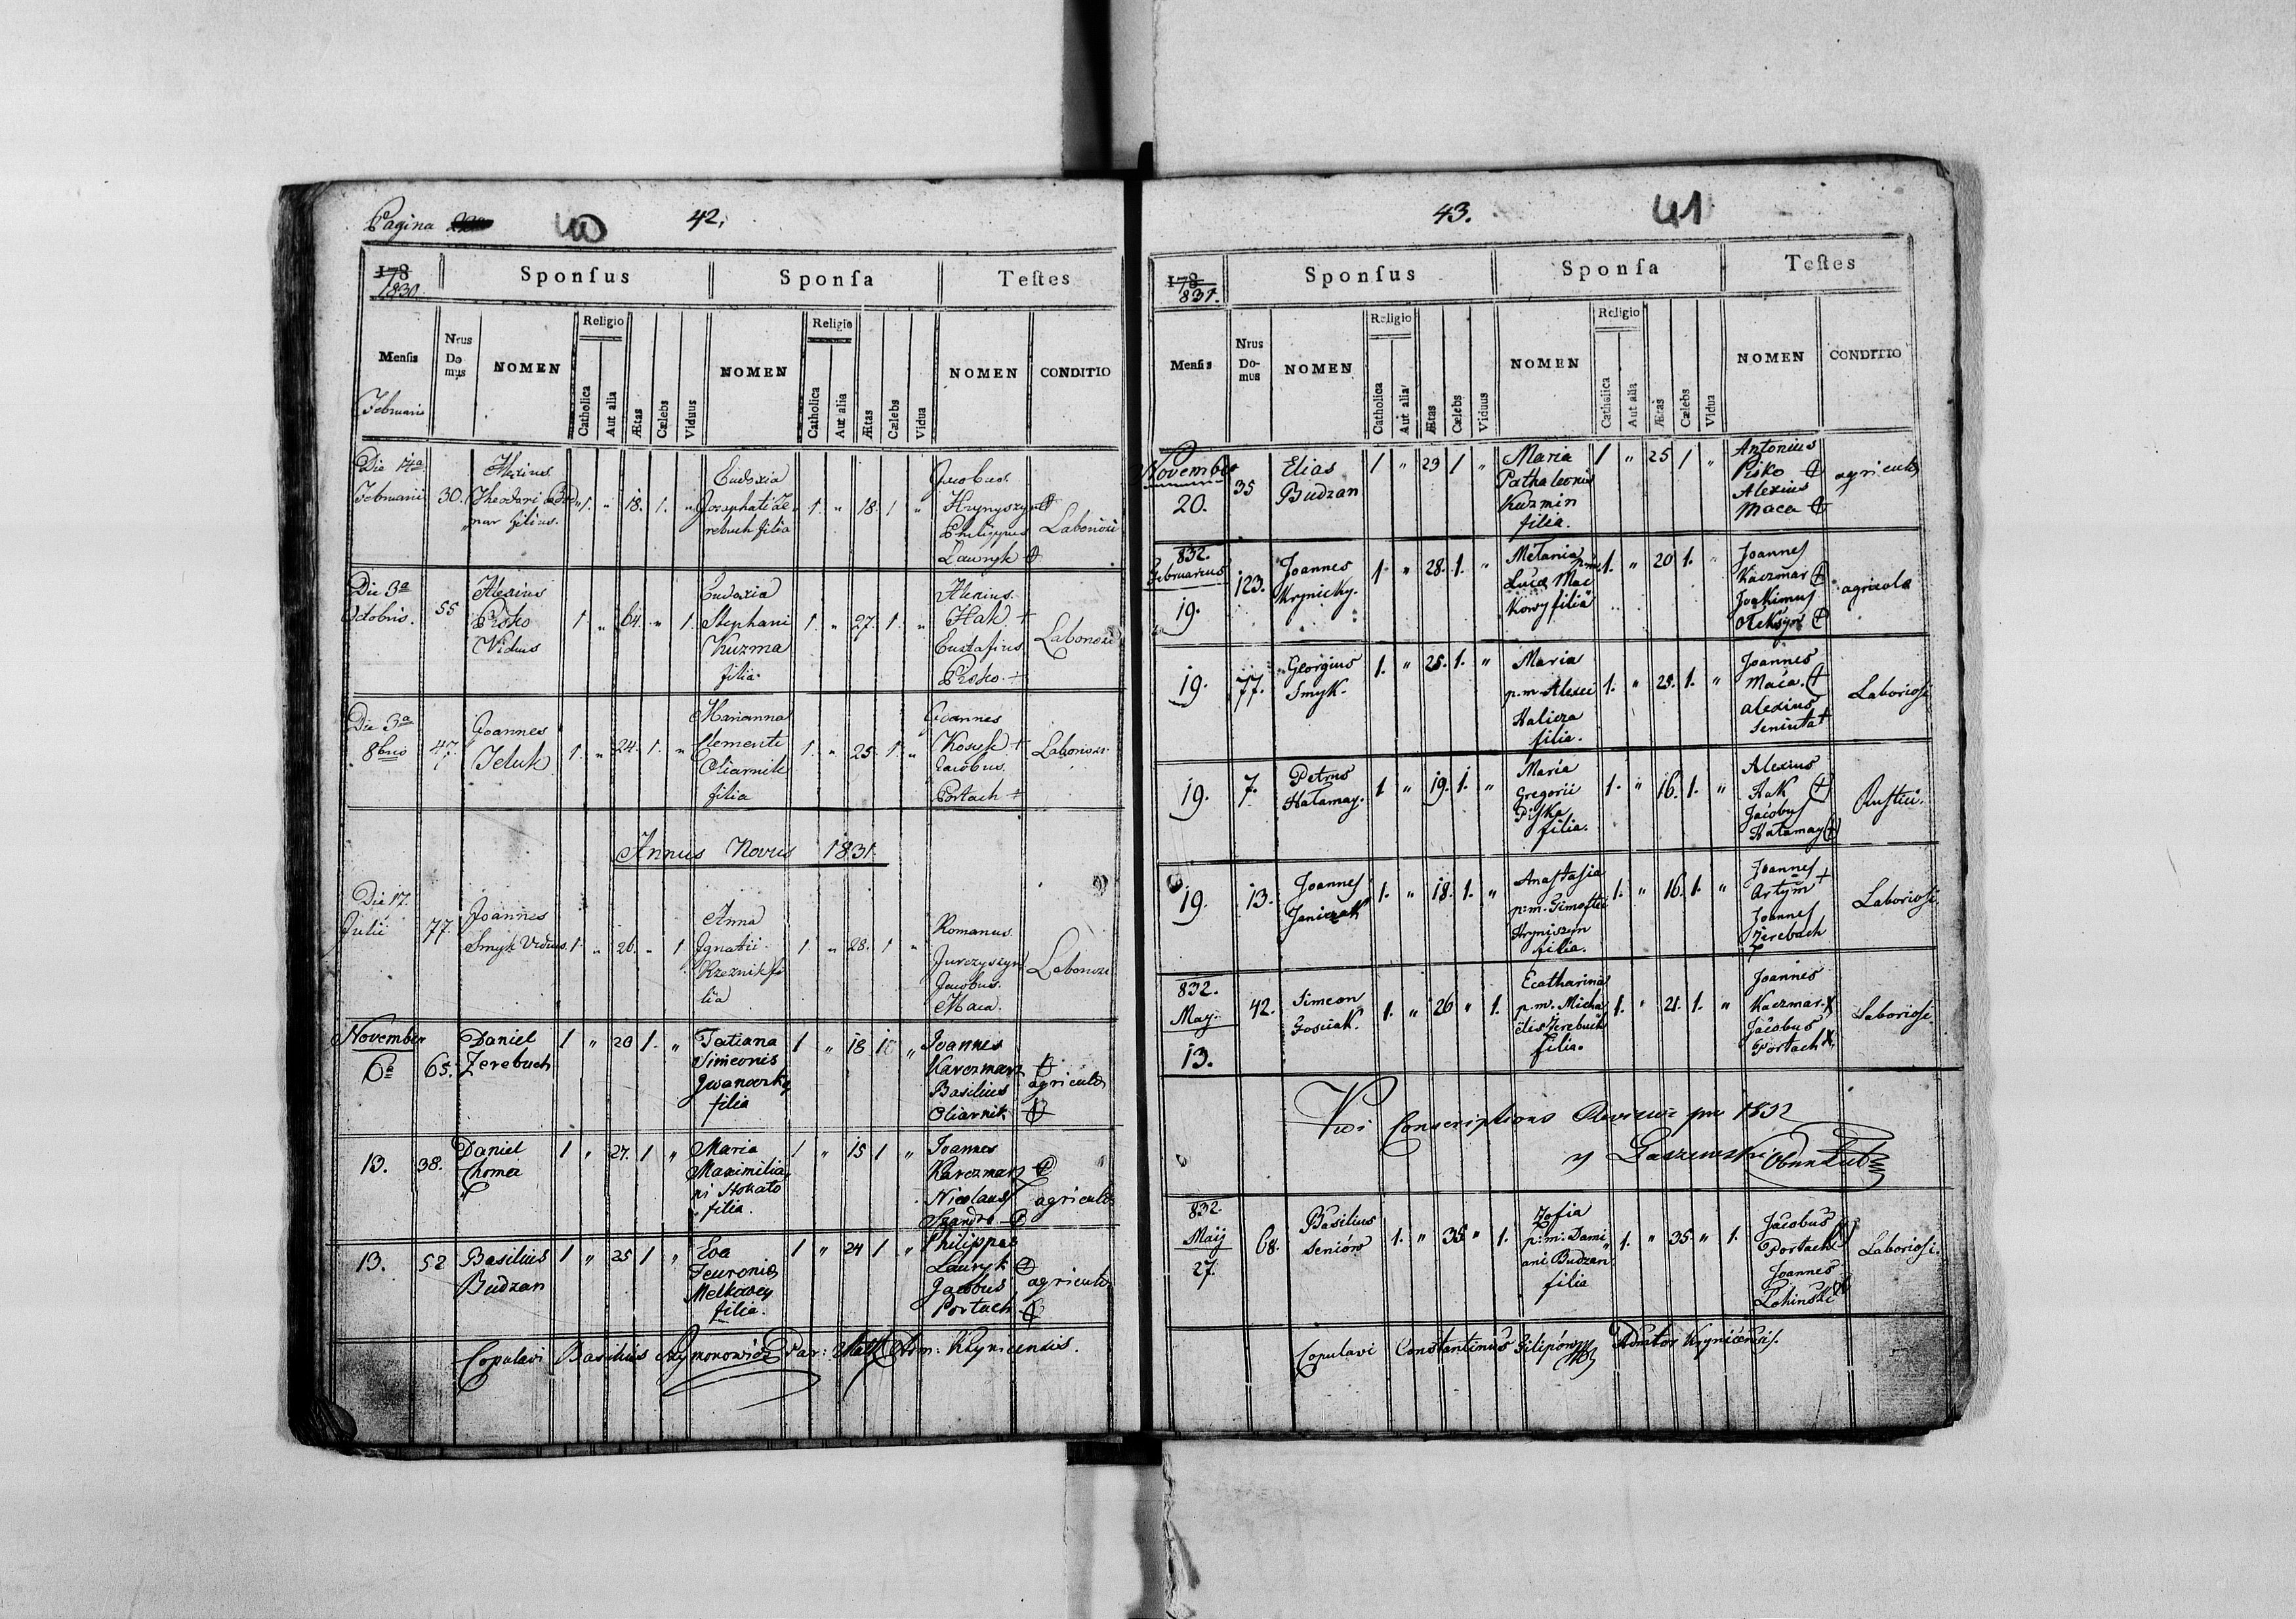 Pagina
40
42.
178
1830.
Sponsus
Sponsa
Testes
Mensis
Nrus Domus
NOMEN
Religio
Catholica
Aut alia
Ætas
Cælebs
Viduus
NOMEN
Religio
Catholica
Aut alia
Ætas
Cælebs
Vidua
NOMEN
CONDITIO
Februarii
Die 14a Februarii 30. Alexius Theodori
filius. 1. " 18. 1. " Eudoxia Josaphati Ze
rebuch filia 1. " 18. 1 " Jacobus
Hrynyszyn
Philippus
Lawryk Laboriosi
Die 3a
Octobris. 55 Alexius
Pisko
Viduus 1 " 64. " 1. Eudoxia
Stephani
Kuzma
filia. 1. " 27. 1. " Alexius
Hak +
Eustafius
Pisko + Laboriosi
Die 3a
8bris 47. Joannes
Teluk 1. " 24. 1. " Marianna
Clementi
Oliarnik
filia 1. " 25. 1. " Joannes
Kosyk +
Jacobus
Portach + Laboriosi
Annus Novus 1831
Die 17.
Julii 77. Joannes
Smyk Viduus. 1. " 26. " 1 Anna
Ignatii
Rzeznik fi
lia 1. " 28. 1 " Romanus
Jurczyszyn
Jacobus
Maca. Laboriosi
November
6a 65. Daniel
Zerebuch 1 " 20 1. " Tatiana
Simeonis
Iwanoczko
filia 1 " 18 " Joannes
Karczmarz
Basilius
Oliarnik agricola
13. 38. Daniel
Choma 1 " 27. 1 " Maria
Maximilia
ni Stokato
filia. 1 " 15 1 " Joannes
Karczmarz
Nicolaus
Szandra agricola
13. 52 Basilius
Budzan 1 " 25 1 " Eva
Feuronia
Melkowey
filia. 1 " 24 1 " Philippus
Lawryk
Jacobus
Portach agricola
Copulavi Basilius Szymonowicz Par: Adm: Krynicensis.
43.
41
178
831.
Sponsus
Sponsa
Testes
Mensis
Nrus Domus
NOMEN
Religio
Catholica
Aut alia
Ætas
Cælebs
Viduus
NOMEN
Religio
Catholica
Aut alia
Ætas
Cælebs
Vidua
NOMEN
CONDITIO
November
20. 35 Elias
Budzan 1 " 29 1 " Maria
Pathaleonis
Kuzmin
filia. 1 " 25 1 " Antonius
Pisko
Alexius
Maca agricola
832.
Februarius
19. 123. Joannes
Krynicky. 1. " 28. 1. " Melania p.m.
Lucæ Mac
kowy filia 1. " 20 1. " Joannes
Kaczmar
Joakimus
Oleksyn agricola
19. 77. Georgius
Smyk. 1. " 25. 1. " Maria
p.m. Alexii
Halicza
filia. 1. " 25. 1. " Joannes
Maca.
Alexius
Seniuta + Laboriosi
19. 7. Petrus
Hałamay. 1 " 19. 1. " Maria
Gregorii
Piska
filia. 1. " 16. 1. " Alexius
Hak
Jacobus
Hałamay Rustici.
19. 13. Joannes
Janiczak 1. " 18. 1. " Anastasia
p.m. Timoftei
Hryniszyn
filia. 1. " 16. 1. " Joannes
Artym +
Joannes
Zerebach Laboriosi.
832.
May.
13. 42. Simeon
Gosciak. 1. " 26 " 1. Ecatharina
p.m. Micha
elis Zerebuch
filia. 1. " 21. 1. " Joannes
Kaczmar.
Jacobus
Portach Laboriosi.
Vidi Conscriptions Revisor pro 1832
832.
Maij
27. 68. Basilius
Seniów 1. " 35. " 1. Zofia
p.m. Dami
ani Budzan
filia 1. " 35. " 1. Jacobus
Portach
Joannes
Łohinski Laboriosi.
Copulavi Constantinus Filipów Admtor Krynicensis.